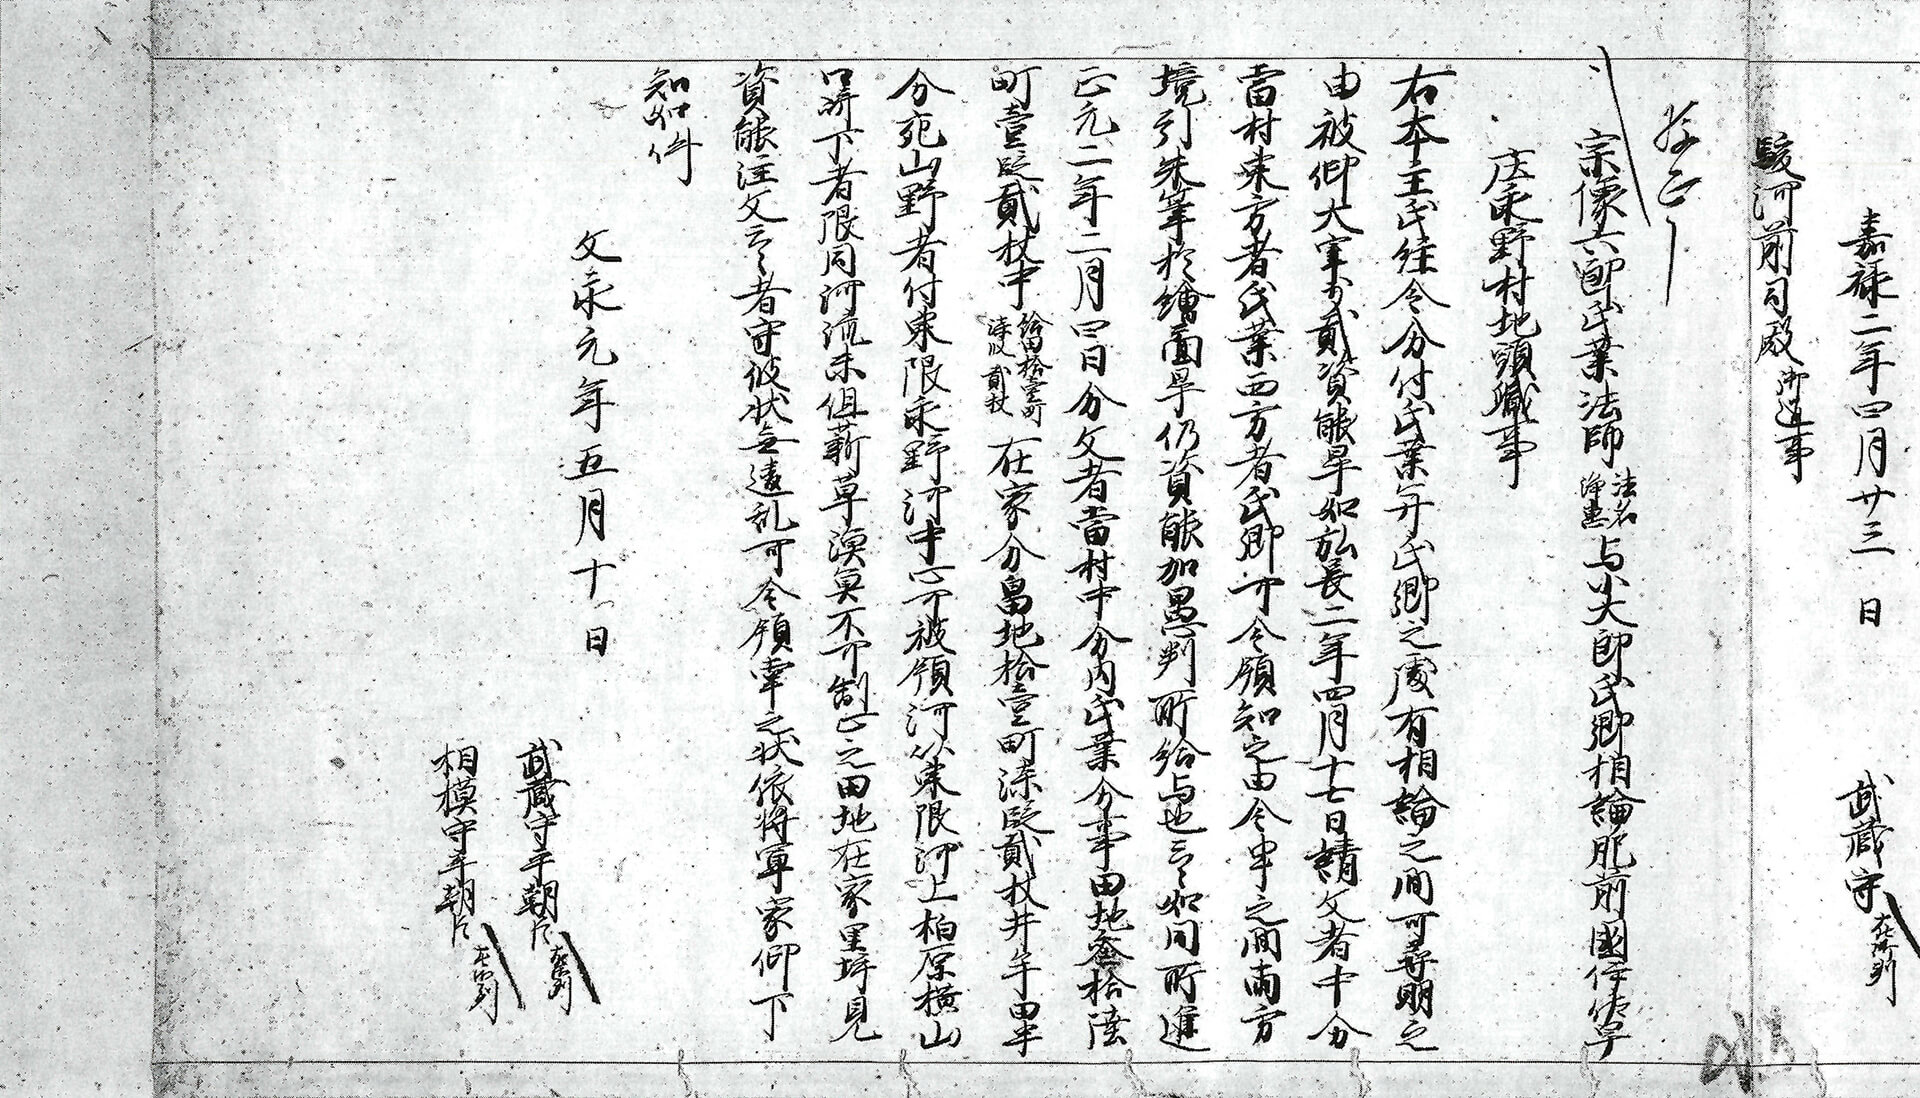 嘉禄二年四月廿三日
武蔵守在御判
駿河前司殿御返事
宗像六郎氏業法師法名浄恵与大郎氏郷相論肥前國伊佐早
庄永野村地頭職事
右本主氏経令分付氏業并氏郷之處有相論之間可尋明之
由被仰大宰少貳資能畢如弘長二年四月十七日請文者中分
當村東方者氏業西方者氏郷可令領知之由令申之間両方
境引朱筆於繪圖畢仍資能加愚判所給与也云々如同所進
正元二年二月四日分文者當村中分内氏業分事田地参拾陸
町壹段貳杖中給田拾壹町漆段貳杖在家分畠地拾壹町漆段貳杖井牟田半
分宛山野者付東限永野河中心可被領河以東限河上柏原横山
口流下者限同河流未但薪草漁奠不可制止之田地在家里坪見
資能注文云々者守彼状無違乱可令領掌之状依将軍家仰下
知如件
文永元年五月十日
武蔵守平朝臣在御判
相模守平朝臣在御判